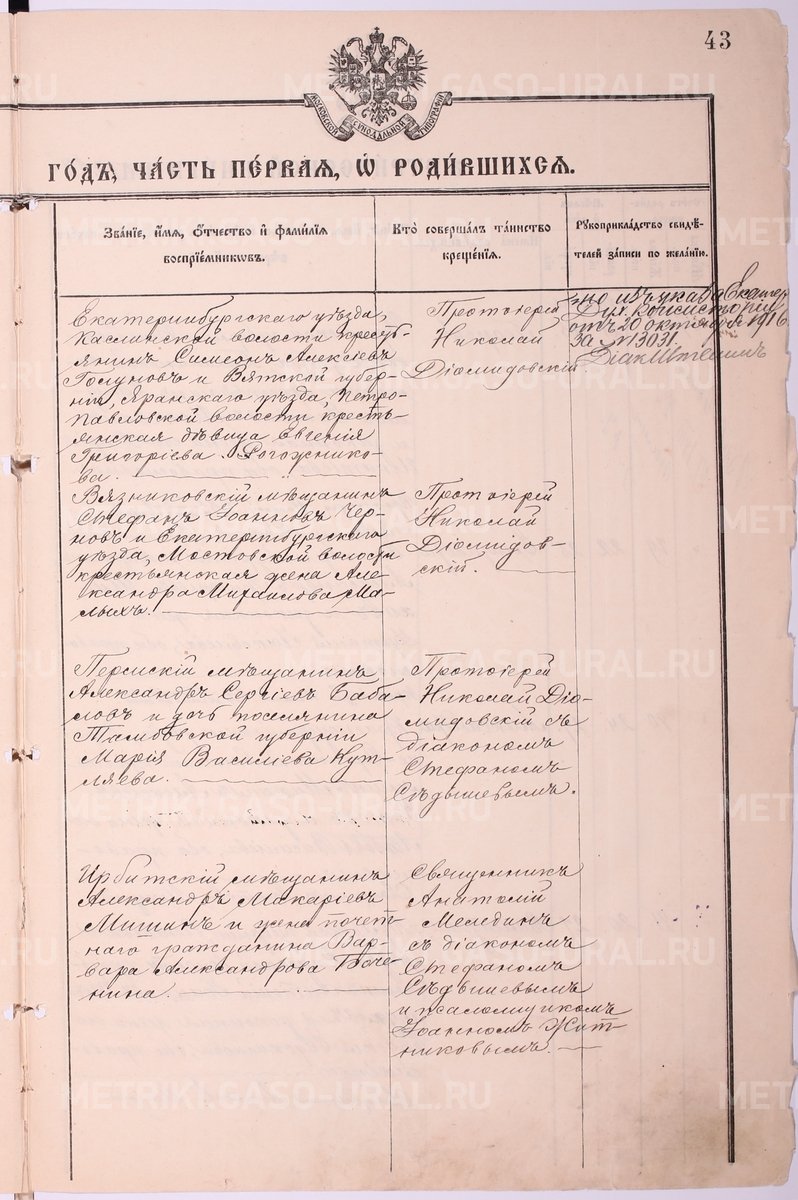 43
МОСКОВСКОЙ СѴНОДАЛЬНОЙ ТИПОГРАФІИ
ГОДЪ, ЧАСТЬ ПЕРВАЯ, Ѡ РОДИВШИХСЯ.
Званіе, имя, отчество и фамилія
воспріемниковъ.
Кто совершалъ таинство
крещенія.
Рукоприкладство свидѣ-
телей записи по желанію.
Екатеринбургскаго уѣзда,
Каслинской волости кресть-
янинъ Симеонъ Алексіевъ
Голуновъ и Вятской губер-
ніи, Яранскаго уѣзда, Петро-
павловской волости кресть-
янская дѣвица Евгенія
Григоріева Рогожнико-
ва.
Протоіерей
Николай
Діомидовскій
но указа Екатер
Дух. Консисторіи
отъ 20 октября 1916
за N 13031
Вязниковскій мѣщанинъ
Стефанъ Іоанновъ Чер-
новъ и Екатеринбургскаго
уѣзда, Мостовской волости
крестьянская жена Але-
ксандра Михаилова Ма-
лыхъ.
Протоіерей
Николай
Діомидов-
скій.
Пермскій мѣщанинъ
Александръ Сергіевъ Баба-
ловъ и дочь поселянина
Тамбовской губерніи
Марія Василіева Кут-
ляева.
Протоіерей
Николай Діо-
мидовскій съ
діакономъ
Стефаномъ
Сѣдышевымъ.
Ирбитскій мѣщанинъ
Александръ Макаріевъ
Мишинъ и жена почет-
наго гражданина Вар-
вара Александрова Боче-
нина.
Священникъ
Анатолій
Мелединъ
съ діакономъ
Стефаномъ
Сѣдышевымъ
и псаломщикомъ
Іоанномъ Жит-
никовымъ.
METRIKI.GASO-URAL.RU